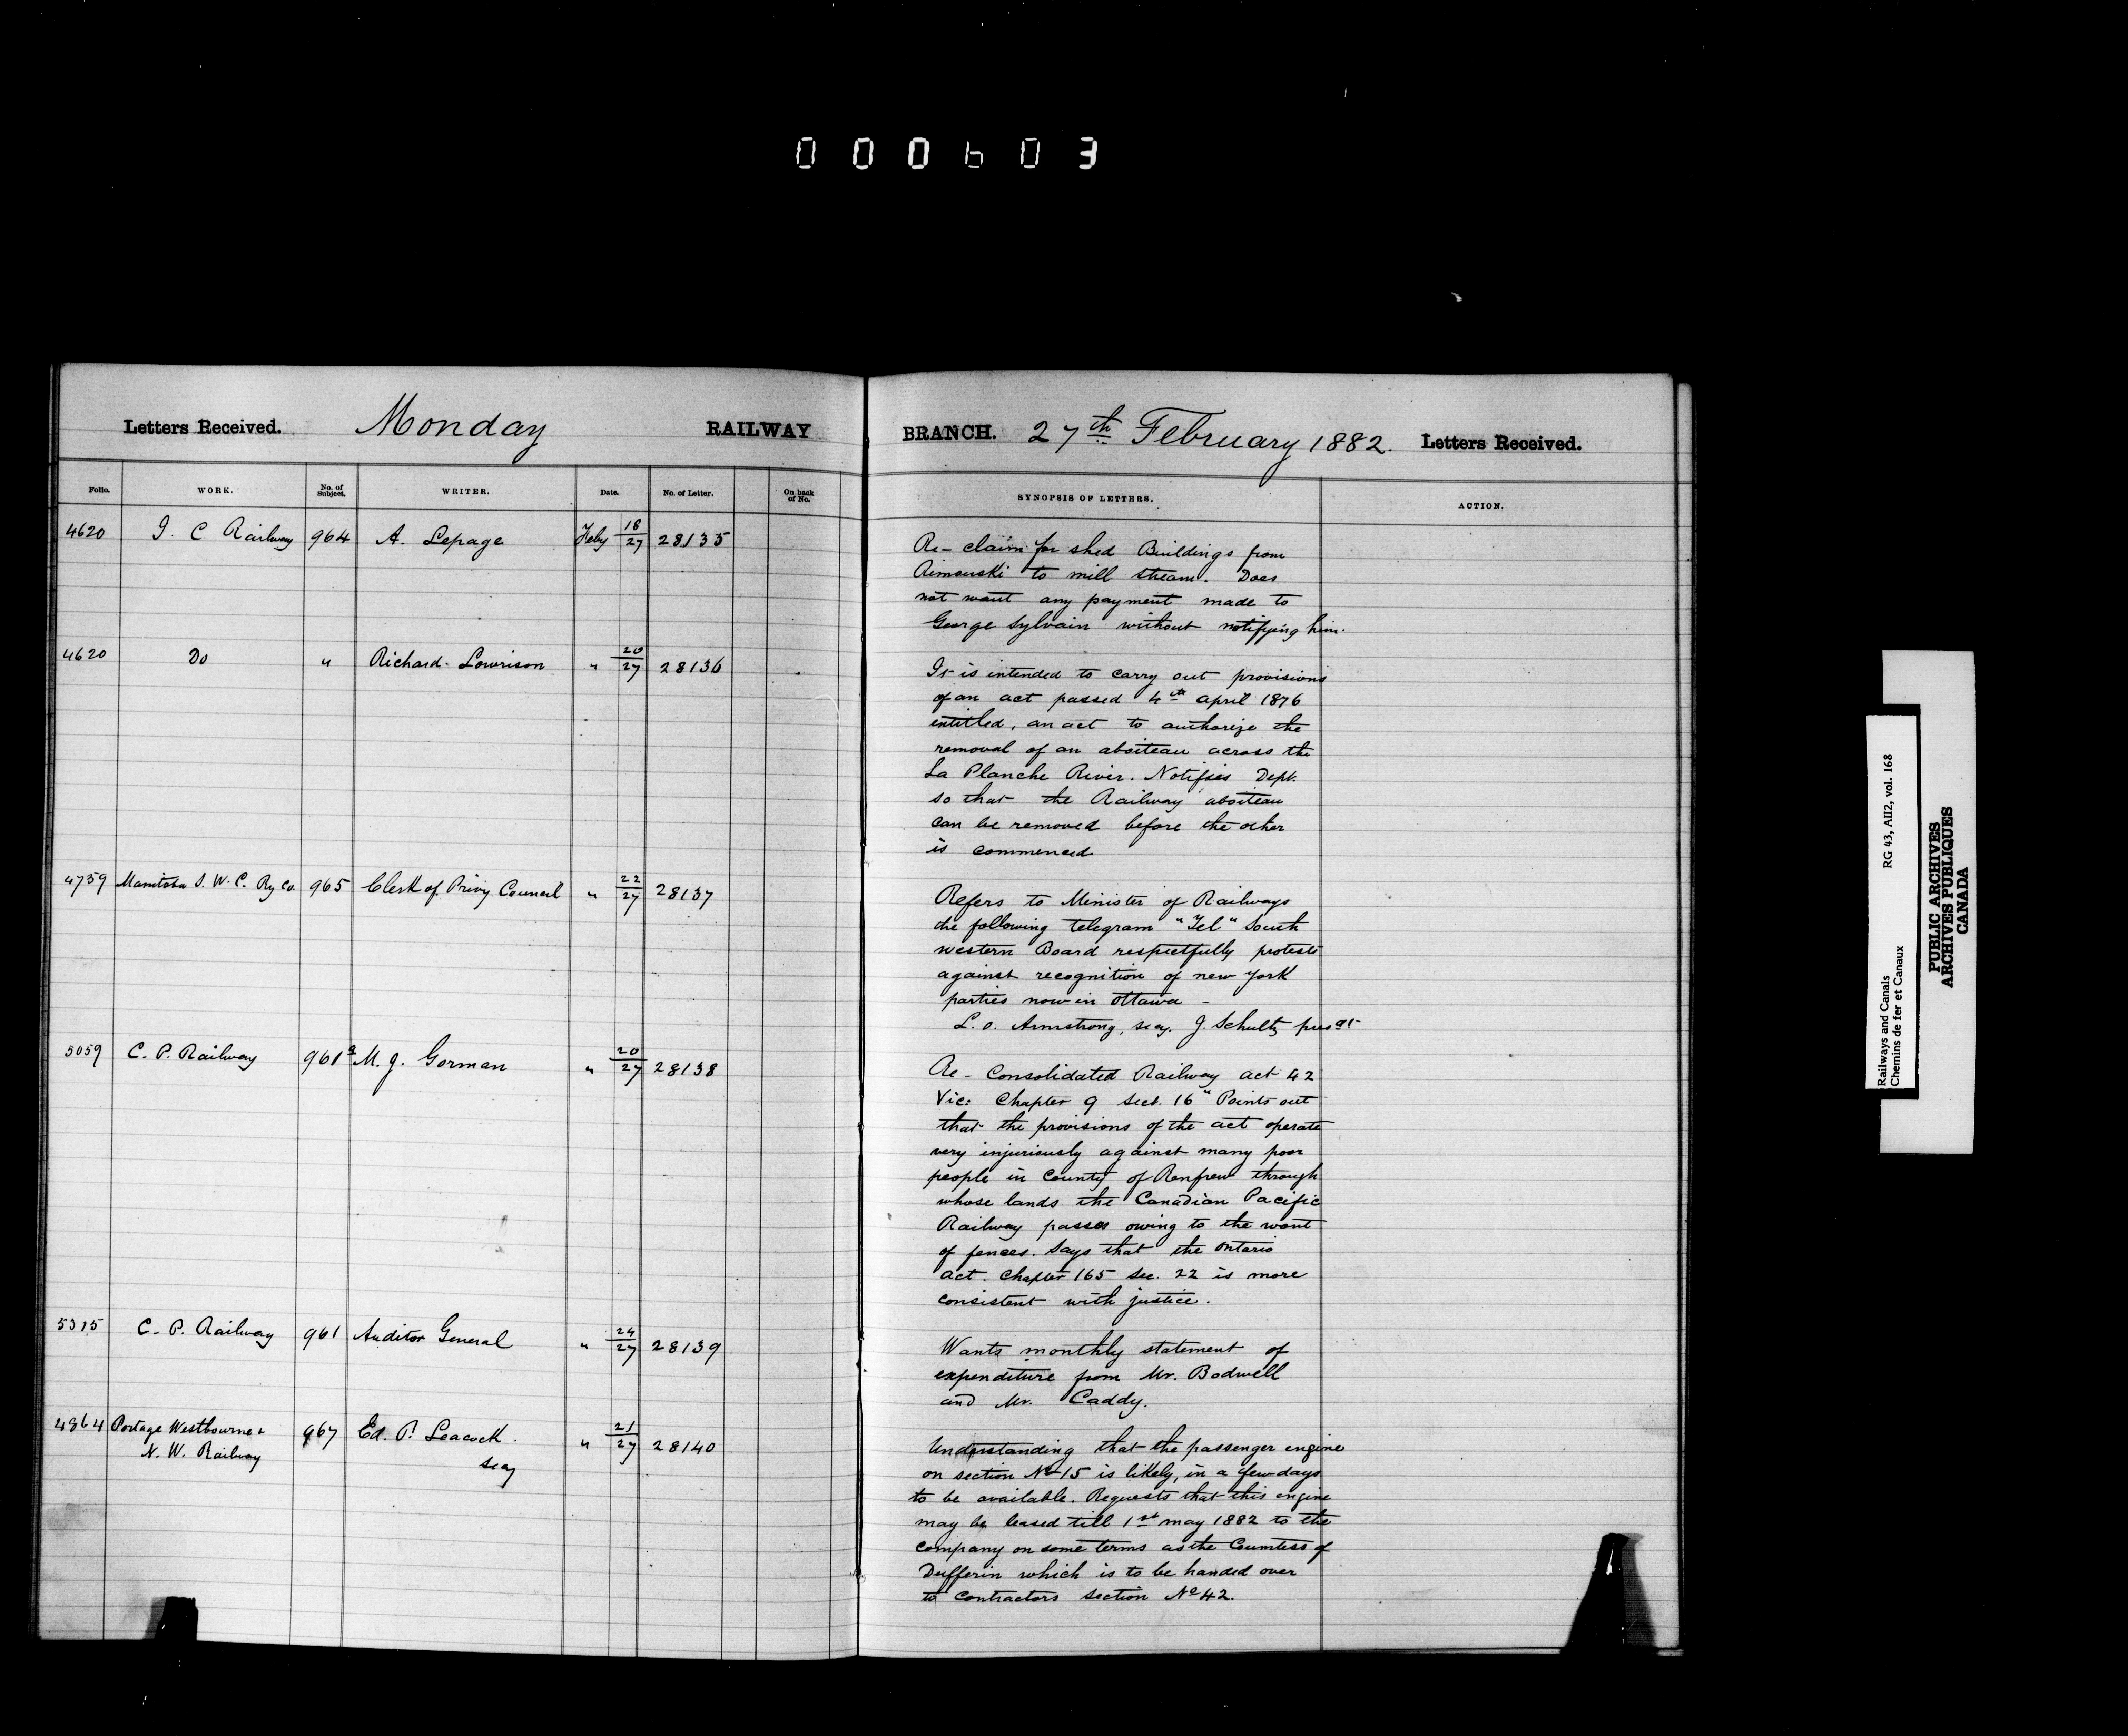 000603
Letters Received. Monday RAILWAY BRANCH. 27th February 1882. Letters Received.
Folio. WORK. No. of Subject. WRITER. Date. No. of Letter. On back of No. SYNOPSIS OF LETTERS. ACTION.
4620 I. C Railway 964 A. Lepage Feby 18/27 28135
Re-claim for shed Buildings from
Rimouski to mill stream. Does
not want any payment made to
George Sylvain without notifying him.
4620 Do " Richard Lowrison " 20/27 28136
It is intended to carry out provisions
of an act passed 4th april 1876
entitled, an act to authorize the
removal of an aboiteau across the
La Planche River. Notifies Dept.
so that the Railway aboiteau
can be removed before the other
is commenced
4759 Manitoba S. W. C. Ry Co. 965 Clerk of Privy Council " 22/27 28137
Refers to Minister of Railways
the following telegram "Tel" South
western Board respectfully protests
against recognition of new york
parties now in Ottawa -
L. O. Armstrong, secy. J. Schultz
5059 C. P. Railway 961a M. J. Gorman " 20/27 28138
Re - Consolidated Railway act 42
Vic: Chapter 9 Sect. 16" Points out
that the provisions of the act operate
very injuriously against many poor
people in County of Renfrew through
whose lands the Canadian Pacific
Railway passes owing to the want
of fences. Says that the Ontario
act. Chapter 165 sec. 22 is more
consistent with justice.
C. P. Railway 961 Auditor General " 24/27 28139
Wants monthly statement of
expenditure from Mr. Bodwell
and Mr. Caddy.
4864 Portage Westbourne &
N. W. Railway 967 Ed. P. Leacock.
secy " 21/27 28140
Understanding that the passenger engine
on section No 15 is likely, in a few days
to be available. Requests that this engine
may be leased till 1st may 1882 to the
company on some terms as the Countess of
Dufferin which is to be handed over
to Contractors section No 42.
Railways and Canals RG 43, AII2, vol. 168
Chemins de fer et Canaux
PUBLIC ARCHIVES
ARCHIVES PUBLIQUES
CANADA